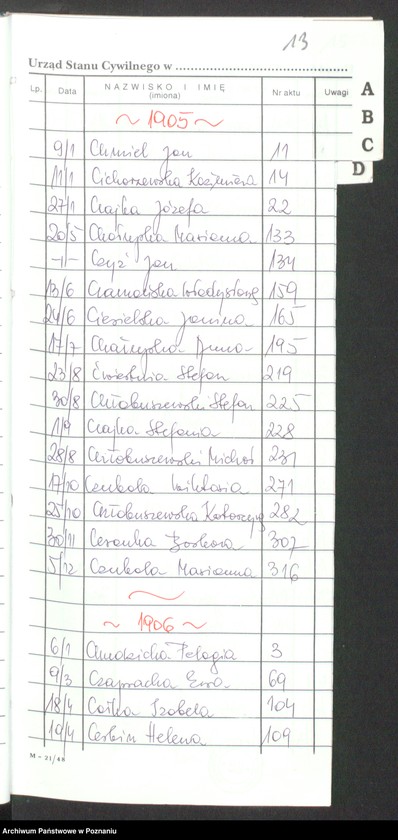 13
Urząd Stanu Cywilnego w
Lp. Data NAZWISKO I IMIĘ (imiona) Nr aktu Uwagi
A
B
C
D
~ 1905 ~
9/1 Chmiel Jan 11
11/1 Cichorzewska Kazimiera 14
27/1 Czajka Józefa 22
20/5 Marianna 133
-||- Czyż Jan 134
13/6 159
24/6 Ciesielska Janina 165
17/7 Anna 195
23/8 Stefan 219
30/8 Chłobuszewski Stefan 225
1/9 Czajka Stefania 228
28/8 Chłobuszewski Michał 231
17/10 Cenkała Wiktoria 271
25/10 Chłobuszewska Katarzyna 282
30/11 Barbara 307
5/12 Cenkała Marianna 316
~ 1906 ~
6/1 Pelagia 3
9/3 Czapracka Ewa 69
18/4 Izabela 104
19/4 Helena 109
M - 21/48
Archiwum Państwowe w Poznaniu